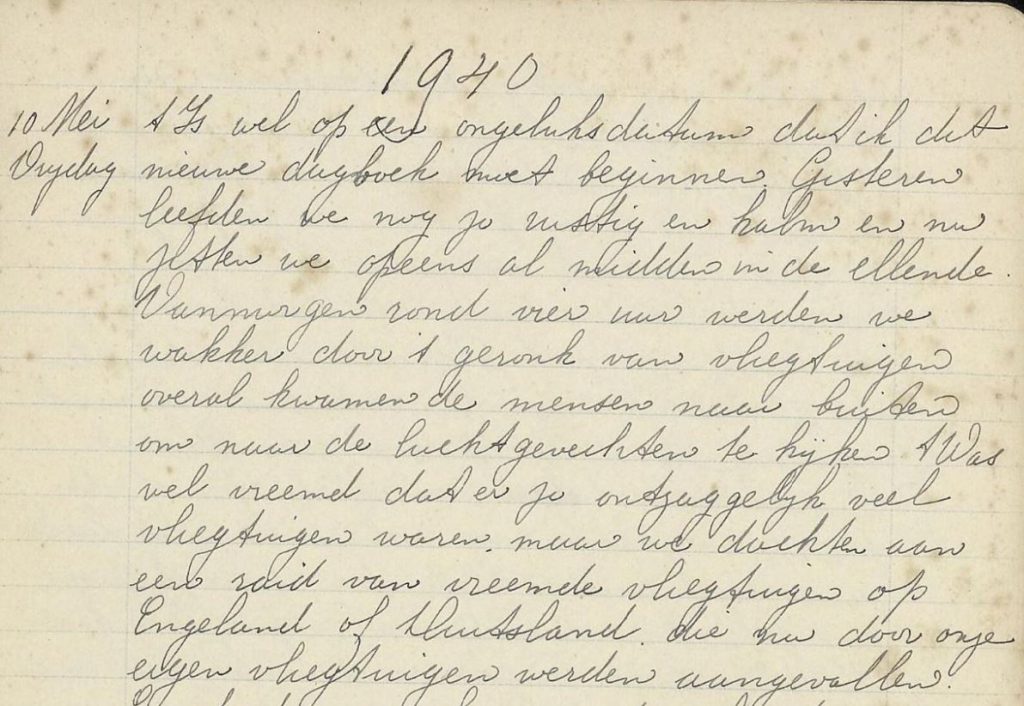 1940
10 Mei 't Is wel op een ongeluksdatum dat ik dit
Vrydag nieuwe dagboek moet beginnen. Gisteren
leefden we nog zo rustig en kalm en nu
zitten we opeens al midden in de ellende.
Vanmorgen rond vier uur werden we
wakker door 't geronk van vliegtuigen
overal kwamen de mensen naar buiten
om naar de luchtgevechten te kijken 't Was
wel vreemd dat er zo ontzaggelyk veel
vliegtuigen waren. maar we dachten aan
een raid van vreemde vliegtuigen op
Engeland of Duitsland. die nu door onze
eigen vliegtuigen werden aangevallen.